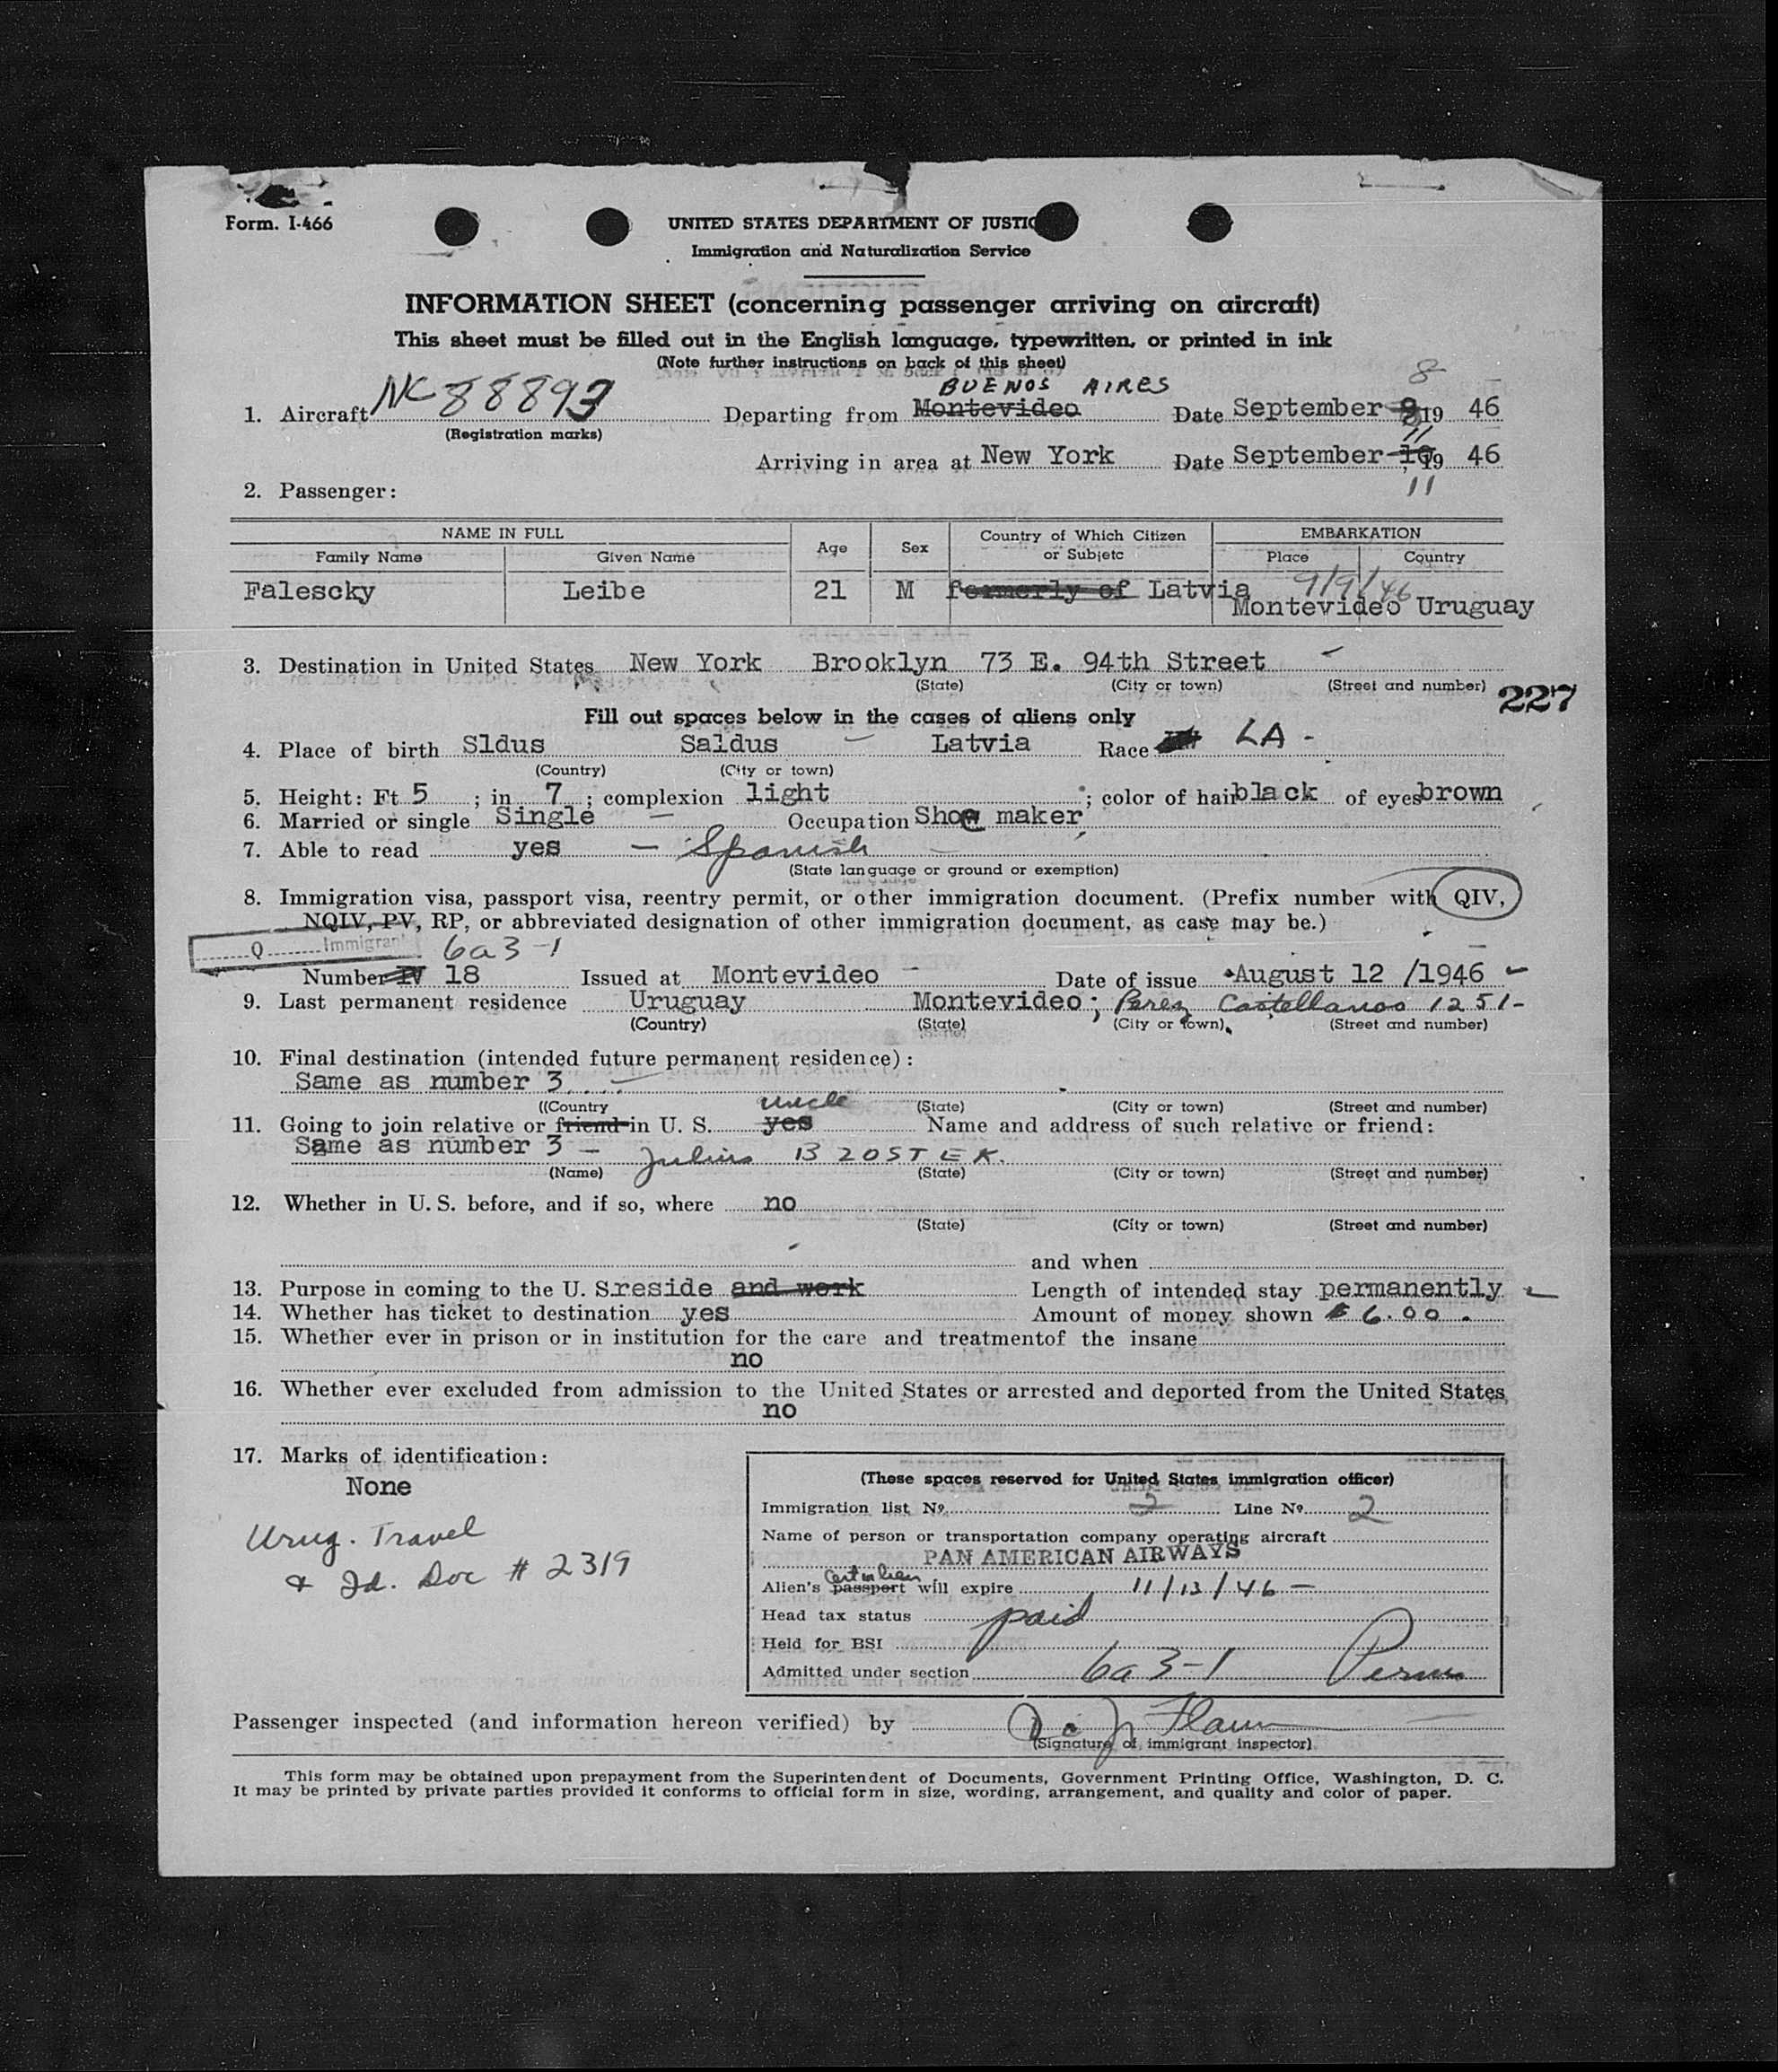 Form. I-466
UNITED STATES DEPARTMENT OF JUSTIC
Immigration and Naturalization Service
INFORMATION SHEET (concerning passenger arriving on aircraft)
This sheet must be filled out in the English language, typewritten, or printed in ink
(Note further instructions on back of this sheet)
BUENOS AIRES 8
1. Aircraft NC 88893 Departing from Montevideo Date September 9 19 46
(Registration marks) 11
Arriving in area at New York Date September 10, 19 46
2. Passenger: 11
NAME IN FULL Age Sex Country of Which Citizen or Subjetc EMBARKATION
Family Name Given Name Place Country
Falescky Leibe 21 M formerly of Latvia 9/9/46
Montevideo Uruguay
3. Destination in United States New York Brooklyn 73 E. 94th Street
(State) (City or town) (Street and number)
227
Fill out spaces below in the cases of aliens only
4. Place of birth Sldus Saldus Latvia Race LA -
(Country) (City or town)
5. Height: Ft 5 ; in 7 ; complexion light ; color of hair black of eyes brown
6. Married or single Single Occupation Shoe maker
7. Able to read yes - Spanish
(State language or ground or exemption)
8. Immigration visa, passport visa, reentry permit, or other immigration document. (Prefix number with QIV,
NQIV, PV, RP, or abbreviated designation of other immigration document, as case may be.)
Q Immigrant 6a3-1
Number IV 18 Issued at Montevideo Date of issue August 12 /1946
9. Last permanent residence Uruguay Montevideo; Perez Castellanos 1251-
(Country) (State) (City or town) (Street and number)
10. Final destination (intended future permanent residence):
Same as number 3
((Country (State) (City or town) (Street and number)
uncle
11. Going to join relative or friend in U. S. yes Name and address of such relative or friend:
Same as number 3 - Julius BZOSTEK.
(Name) (State) (City or town) (Street and number)
12. Whether in U. S. before, and if so, where no
(State) (City or town) (Street and number)
and when
13. Purpose in coming to the U. S. reside and work Length of intended stay permanently
14. Whether has ticket to destination yes Amount of money shown $6.00.
15. Whether ever in prison or in institution for the care and treatmentof the insane
no
16. Whether ever excluded from admission to the United States or arrested and deported from the United States
no
17. Marks of identification:
None
Urug. Travel
& Id. Doc # 2319
(These spaces reserved for United States immigration officer)
Immigration list Nº 2 Line Nº 2
Name of person or transportation company operating aircraft
PAN AMERICAN AIRWAYS
Alien's passport will expire 11/13/46 -
Head tax status paid
Held for BSI
Admitted under section 6a 3-1 Perm
Passenger inspected (and information hereon verified) by
(Signature of immigrant inspector)
This form may be obtained upon prepayment from the Superintendent of Documents, Government Printing Office, Washington, D. C.
It may be printed by private parties provided it conforms to official form in size, wording, arrangement, and quality and color of paper.